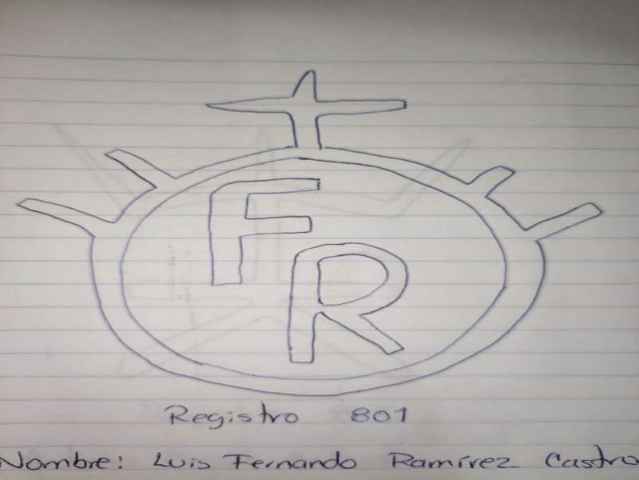 FR
Registro 801
Nombre: Luis Fernando Ramírez Castro